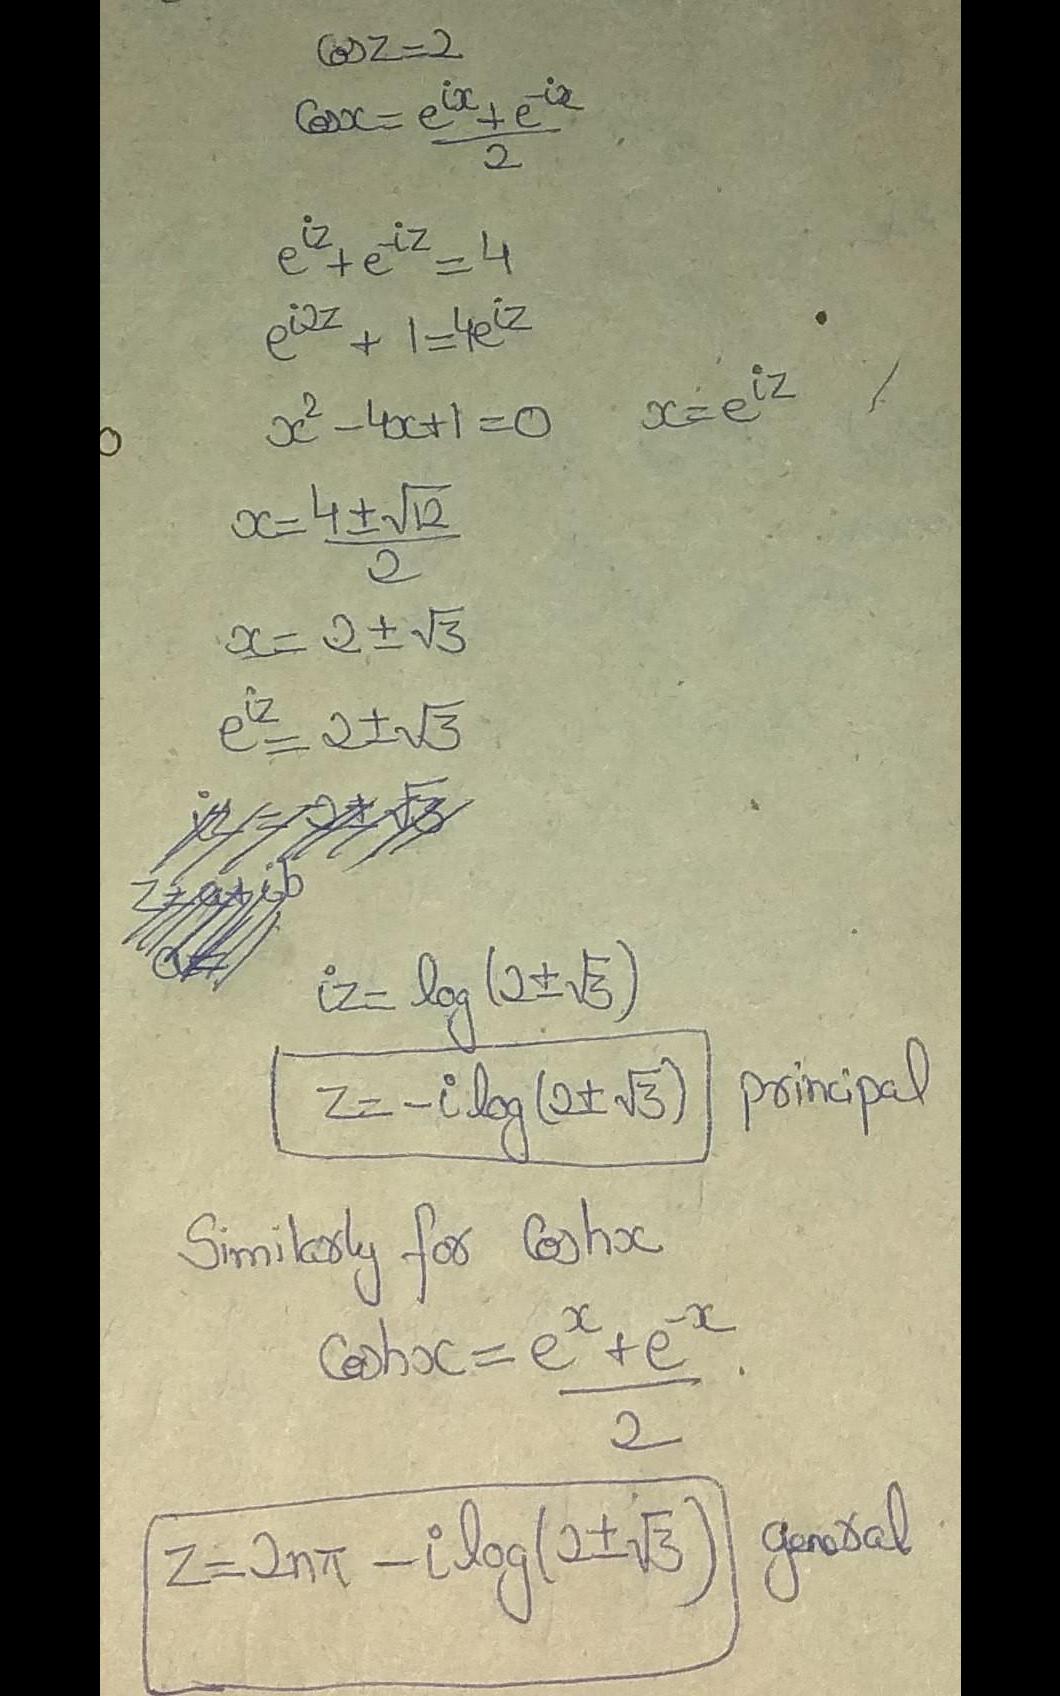 cosz=2
cosx= e^ix+e^-ix / 2
e^iz+e^-iz=4
e^i2z + 1=4e^iz
x²-4x+1=0 x=e^iz
x= 4±√12 / 2
x= 2±√3
e^iz= 2±√3
iz = 2±√3
z=a+ib
a=
iz= log(2±√3)
z= -i log(2±√3) principal
Similarly for coshx
coshx= e^x+e^-x / 2
z=2nπ -i log(2±√3) general